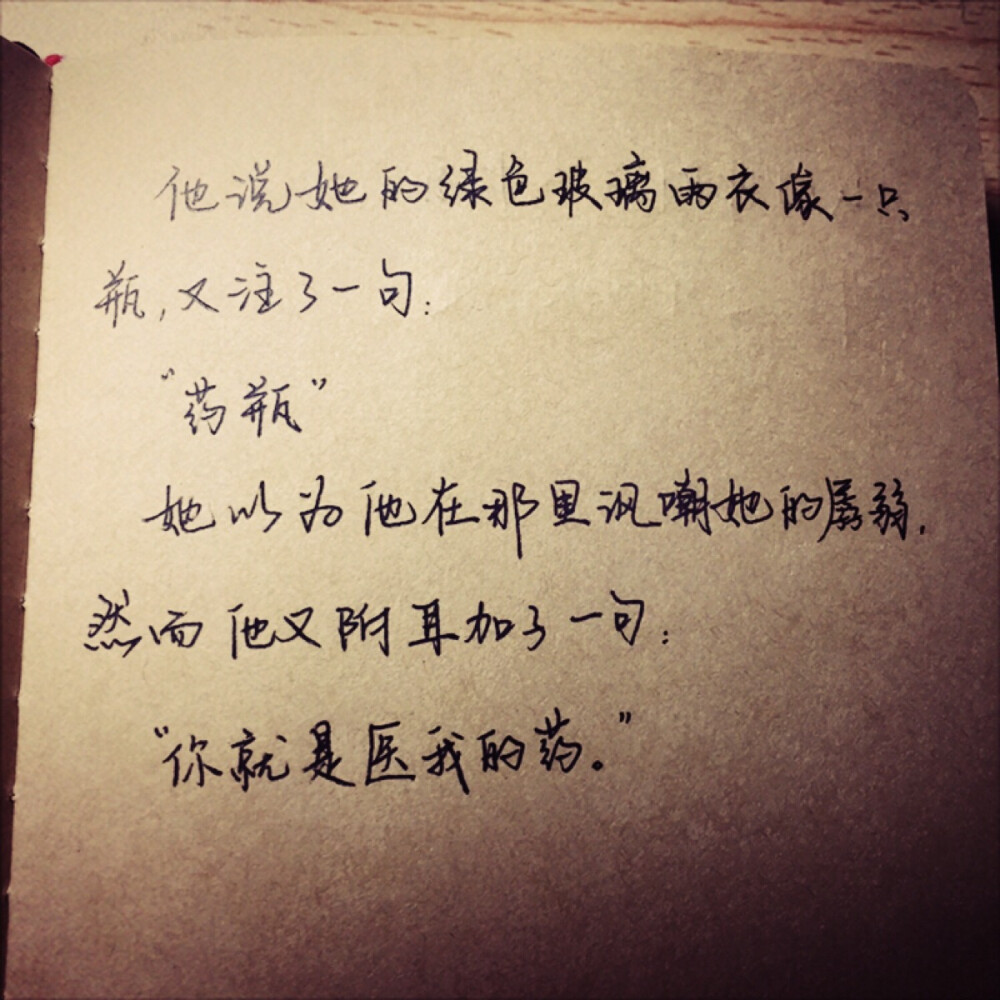 他说她的绿色玻璃雨衣像一只
瓶,又注了一句:
“药瓶”
她以为他在那里讽嘲她的孱弱,
然而他又附耳加了一句:
“你就是医我的药。”